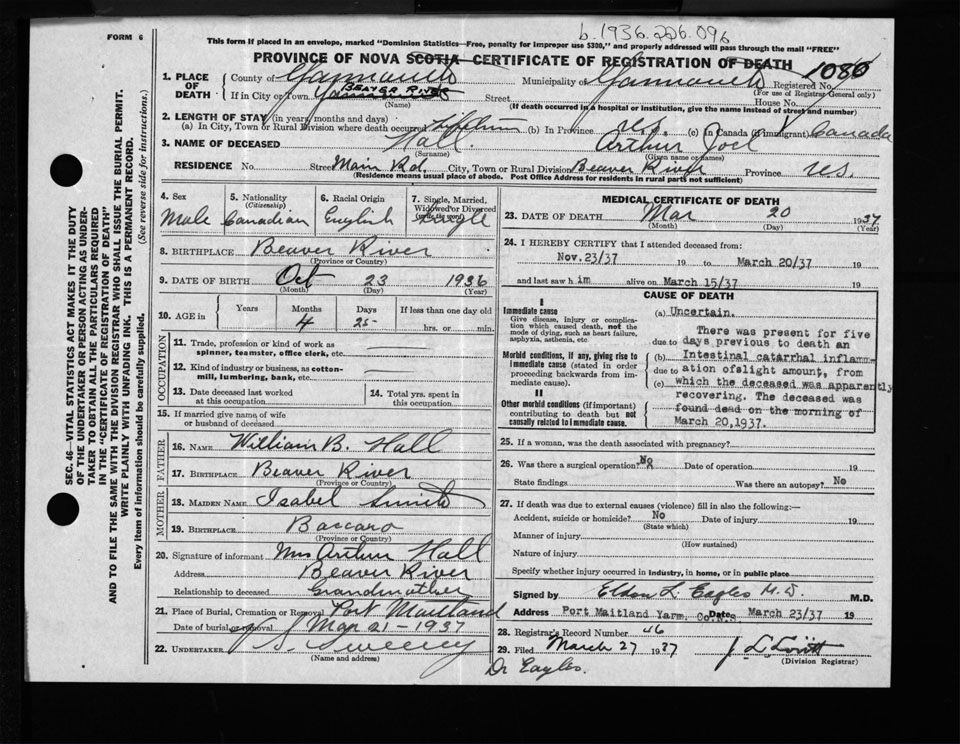 b.1936.226.096
FORM 6
This form if placed in an envelope, marked "Dominion Statistics—Free, penalty for improper use $300," and properly addressed will pass through the mail "FREE"
PROVINCE OF NOVA SCOTIA—CERTIFICATE OF REGISTRATION OF DEATH
1080
1. PLACE OF DEATH
County of Yarmouth Municipality of Yarmouth Registered No.
(For use of Registrar General only)
If in City or Town BEAVER RIVER Street House No.
(Name) (If death occurred in a hospital or institution, give the name instead of street and number)
2. LENGTH OF STAY (in years, months and days)
(a) In City, Town or Rural Division where death occurred Lifetime (b) In Province (c) In Canada (if immigrant) Canada
3. NAME OF DECEASED Hall Arthur Joel
(Surname) (Given name or names)
RESIDENCE No. Street Main Rd. City, Town or Rural Division Beaver River Province N.S.
(Residence means usual place of abode. Post Office Address for residents in rural parts not sufficient)
4. Sex Male
5. Nationality (Citizenship) Canadian
6. Racial Origin English
7. Single, Married, Widowed or Divorced (write the word) Single
8. BIRTHPLACE Beaver River
(Province or Country)
9. DATE OF BIRTH Oct 23 1936
(Month) (Day) (Year)
10. AGE in Years Months 4 Days 25 If less than one day old
hrs. or min.
OCCUPATION
11. Trade, profession or kind of work as spinner, teamster, office clerk, etc.
12. Kind of industry or business, as cotton-mill, lumbering, bank, etc.
13. Date deceased last worked at this occupation
14. Total yrs. spent in this occupation
15. If married give name of wife or husband of deceased
FATHER
16. NAME William B. Hall
17. BIRTHPLACE Beaver River
(Province or Country)
MOTHER
18. MAIDEN NAME Isabel Smith
19. BIRTHPLACE Baccaro
(Province or Country)
20. Signature of informant Mrs Arthur Hall
Address Beaver River
Relationship to deceased Grandmother
21. Place of Burial, Cremation or Removal Port Maitland
Date of burial or removal Mar 21 – 1937
22. UNDERTAKER Sweeney
(Name and address)
MEDICAL CERTIFICATE OF DEATH
23. DATE OF DEATH Mar 20 1937
(Month) (Day) (Year)
24. I HEREBY CERTIFY that I attended deceased from:
Nov.23/37 19 to March 20/37 19
and last saw h im alive on March 15/37 19
CAUSE OF DEATH
I
Immediate cause
Give disease, injury or complication which caused death, not the mode of dying, such as heart failure, asphyxia, asthenia, etc.
Morbid conditions, if any, giving rise to immediate cause (stated in order proceeding backwards from immediate cause).
II
Other morbid conditions (if important) contributing to death but not causally related to immediate cause.
(a) Uncertain.
There was present for five
due to days previous to death an
(b) Intestinal catarrhal inflamm-
due to ation ofslight amount, from
(c) which the deceased was apparently
recovering. The deceased was
found dead on the morning of
March 20,1937.
25. If a woman, was the death associated with pregnancy?
26. Was there a surgical operation? No Date of operation 19
State findings Was there an autopsy? No
27. If death was due to external causes (violence) fill in also the following:—
Accident, suicide or homicide? No Date of injury 19
(State which)
Manner of injury
(How sustained)
Nature of injury
Specify whether injury occurred in industry, in home, or in public place
Signed by Eldon L. Eagles M.D. M.D.
Address Port Maitland Yarm. Co. N.S. Date March 23/37 19
28. Registrar's Record Number 46
29. Filed March 27 1937 J. L. Lovitt
(Division Registrar)
Dr Eagles.
SEC. 46—VITAL STATISTICS ACT MAKES IT THE DUTY OF THE UNDERTAKER OR PERSON ACTING AS UNDERTAKER TO OBTAIN ALL THE PARTICULARS REQUIRED IN THE "CERTIFICATE OF REGISTRATION OF DEATH"
AND TO FILE THE SAME WITH THE DIVISION REGISTRAR WHO SHALL ISSUE THE BURIAL PERMIT.
WRITE PLAINLY WITH UNFADING INK. THIS IS A PERMANENT RECORD.
Every item of information should be carefully supplied. (See reverse side for instructions.)